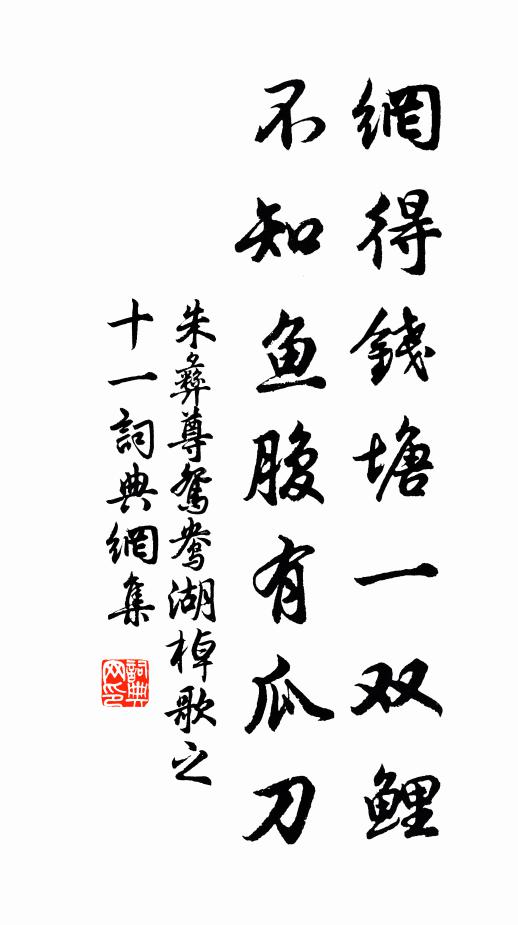 網得錢塘一双鯉
不知魚腹有瓜刀
朱彝尊鴛鴦湖棹歌之
十一詞典網集
詞典网印